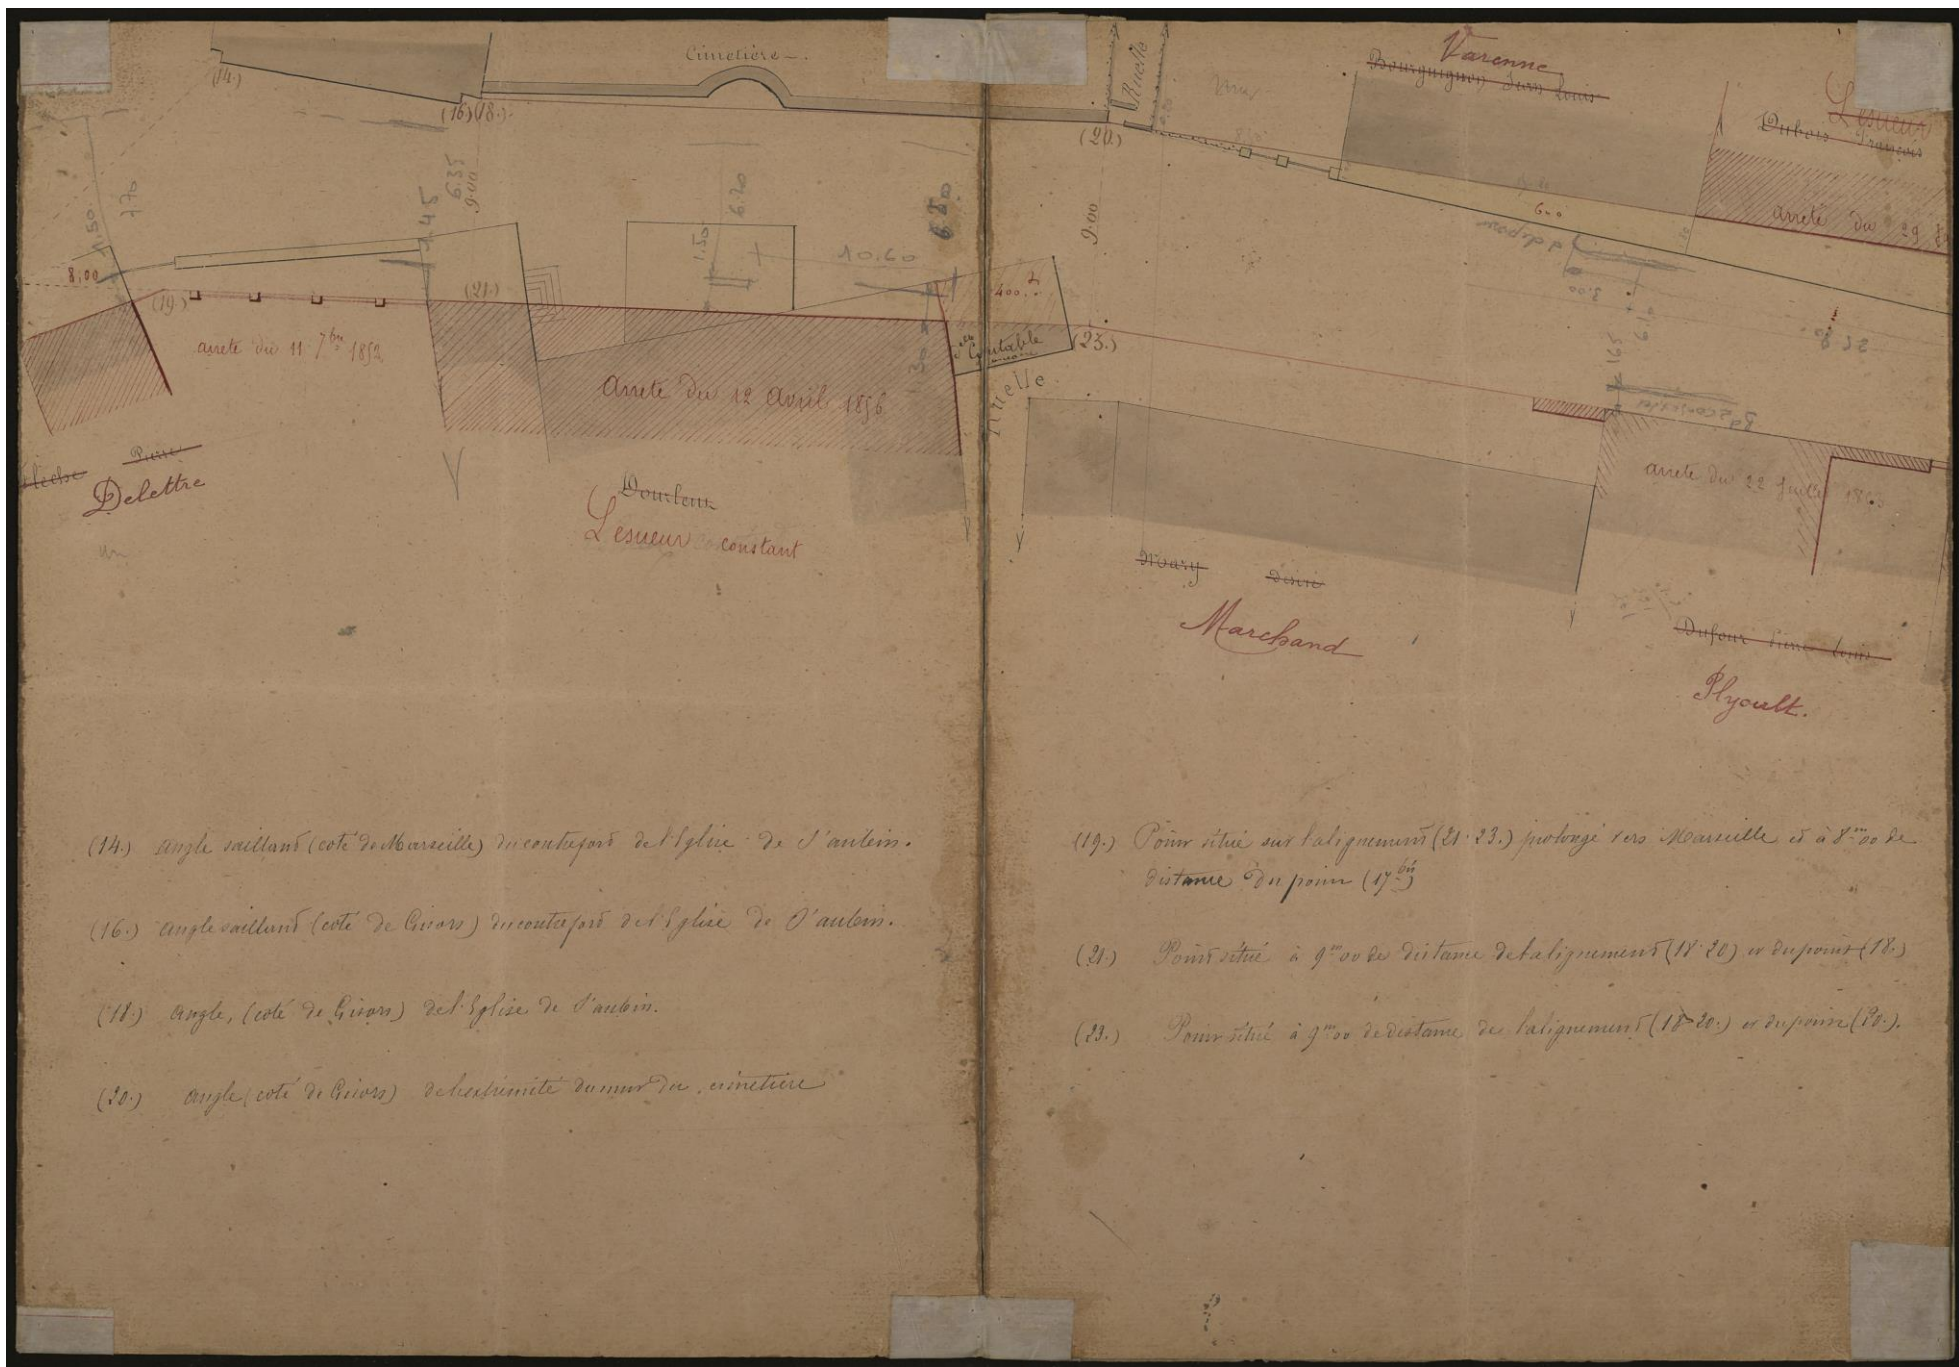 Cimetière
Ruelle
mur
Varenne
Bourguignon Jean Louis
Lesueur
Dubois François
(14.)
(16)(18.)
(20.)
6.35
9.00
1.50
7.70
1.45
6.20
1.50
6.80
10.60
9.00
8.00
(19)
(21)
400
600
arrêté du 29
3.00
6.10
25.80
1.65
arrêté du 11 7bre 1852
Constable
(23.)
Ruelle
1.30
arrêté du 12 avril 1856
arrêté du 22 Juillet
Pierre
Delettre
Dourlens
Lesueur constant
Désiré
Marchand
Dufour Pierre Louis
Plyoult.
(14.) angle saillant (coté de Marseille) du contrefort de l'Eglise de St aubin.
(16.) angle saillant (coté de Gisors) du contrefort de l'Eglise de St aubin.
(18.) angle, (coté de Gisors) de l'Eglise de St aubin.
(20.) angle (coté de Gisors) de l'extrémité du mur du cimetière
(19.) Point situé sur l'alignement (21-23.) prolongé vers Marseille et à 8m00 de
distance du point (17 bis)
(21.) Point situé à 9m00 de distance de l'alignement (18-20) et du point (18.)
(23.) Point situé à 9m00 de distance de l'alignement (18-20.) et du point (20.).